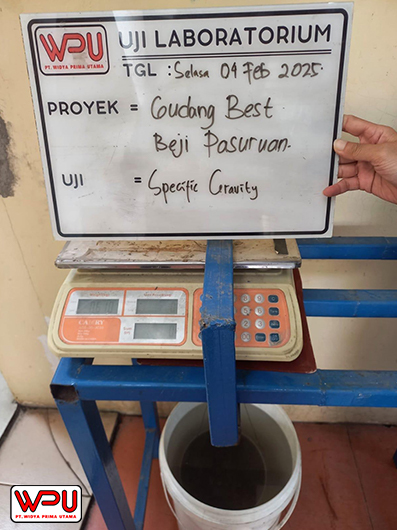 WPU
PT. WIDYA PRIMA UTAMA
UJI LABORATORIUM
TGL : Selasa 04 Feb 2025.
PROYEK = Gudang Best
Beji Pasuruan.
UJI = Specific Gravity
CAMRY
WPU
PT. WIDYA PRIMA UTAMA